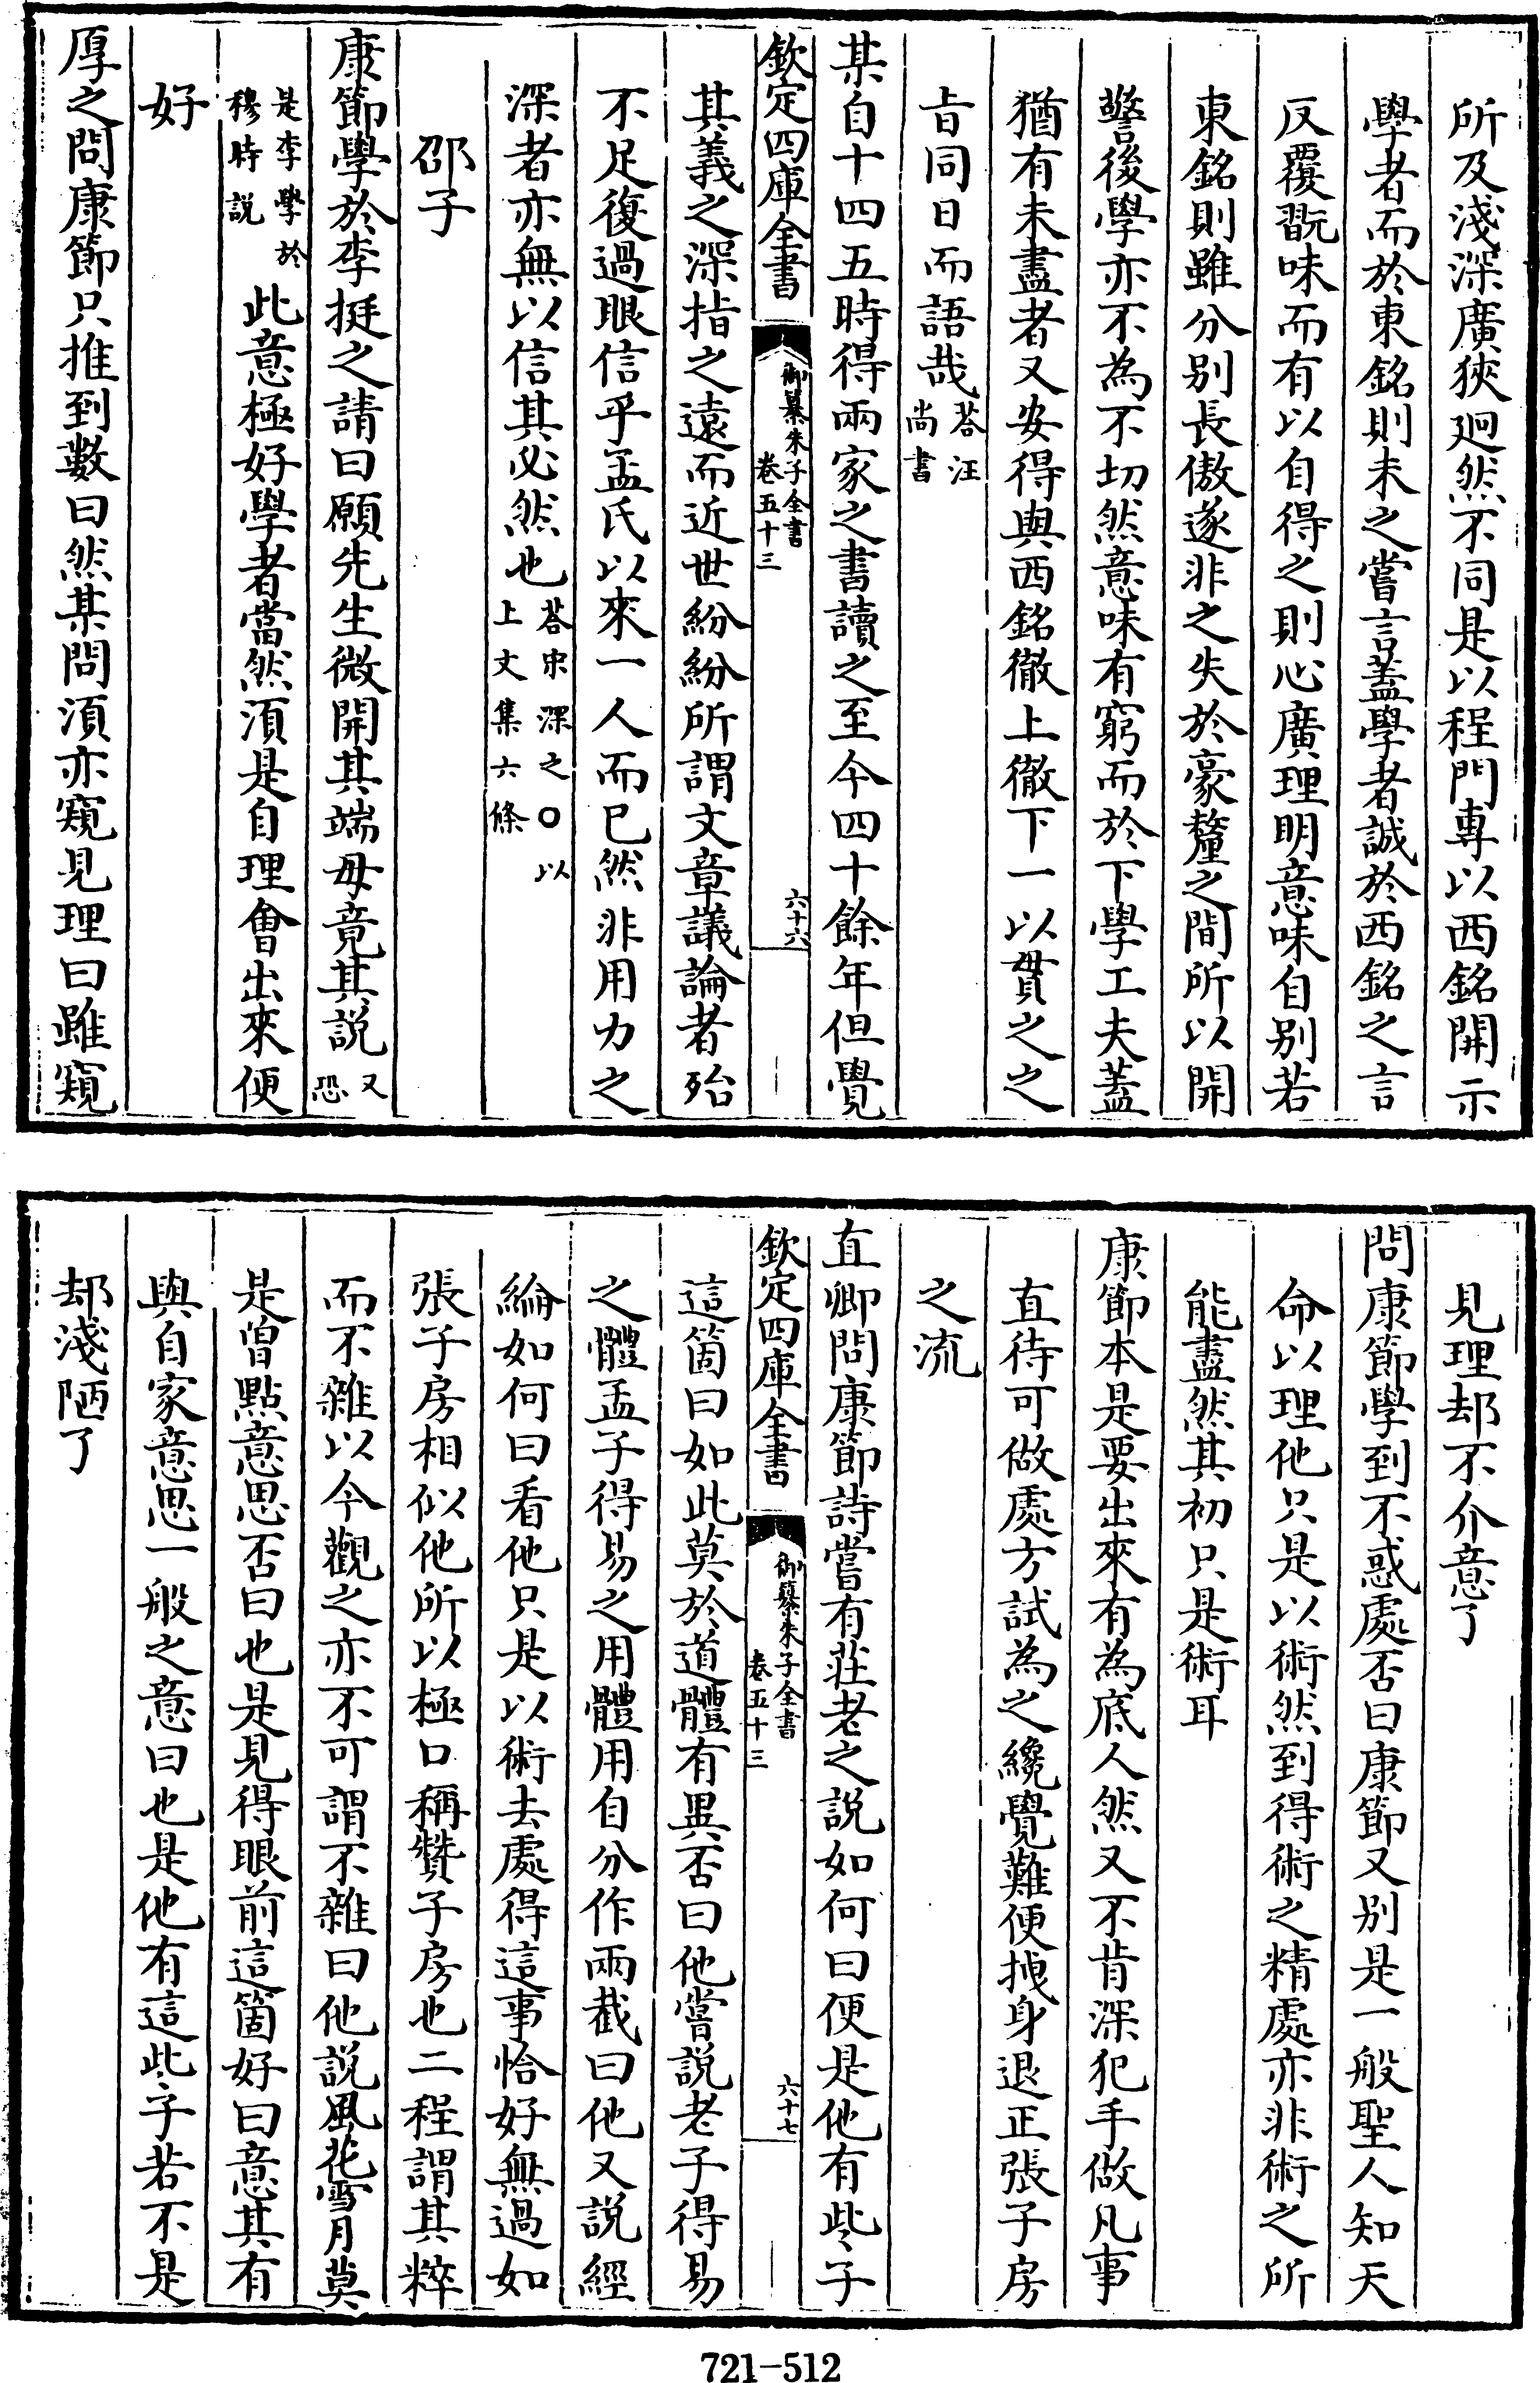 所及淺深廣狹迥然不同是以程門專以西銘開示
學者而於東銘則未之嘗言蓋學者誠於西銘之言
反覆翫味而有以自得之則心廣理明意味自别若
東銘則雖分别長傲遂非之失於豪釐之間所以開
警後學亦不為不切然意味有窮而於下學工夫蓋
猶有未盡者又安得與西銘徹上徹下一以貫之之
㫖同日而語哉答汪
尚書
某自十四五時得兩家之書讀之至今四十餘年但覺
欽定四庫全書
御纂朱子全書
卷五十三
六十六
其義之深指之遠而近世紛紛所謂文章議論者殆
不足復過眼信乎孟氏以來一人而已然非用力之
深者亦無以信其必然也答宋深之○以
上文集六條
邵子
康節學於李挺之請曰願先生微開其端毋竟其説又
恐
是李學於
穆時説此意極好學者當然須是自理會出來便
好
厚之問康節只推到數曰然某問須亦窺見理曰雖窺
見理却不介意了
問康節學到不惑處否曰康節又别是一般聖人知天
命以理他只是以術然到得術之精處亦非術之所
能盡然其初只是術耳
康節本是要出來有為底人然又不肯深犯手做凡事
直待可做處方試為之纔覺難便拽身退正張子房
之流
直卿問康節詩嘗有莊老之説如何曰便是他有些子
欽定四庫全書
御纂朱子全書
卷五十三
六十七
這箇曰如此莫於道體有異否曰他嘗説老子得易
之體孟子得易之用體用自分作兩截曰他又説經
綸如何曰看他只是以術去處得這事恰好無過如
張子房相似他所以極口稱贊子房也二程謂其粹
而不雜以今觀之亦不可謂不雜曰他説風花雪月莫
是曾點意思否曰也是見得眼前這箇好曰意其有
與自家意思一般之意曰也是他有這些子若不是
却淺陋了
721-512